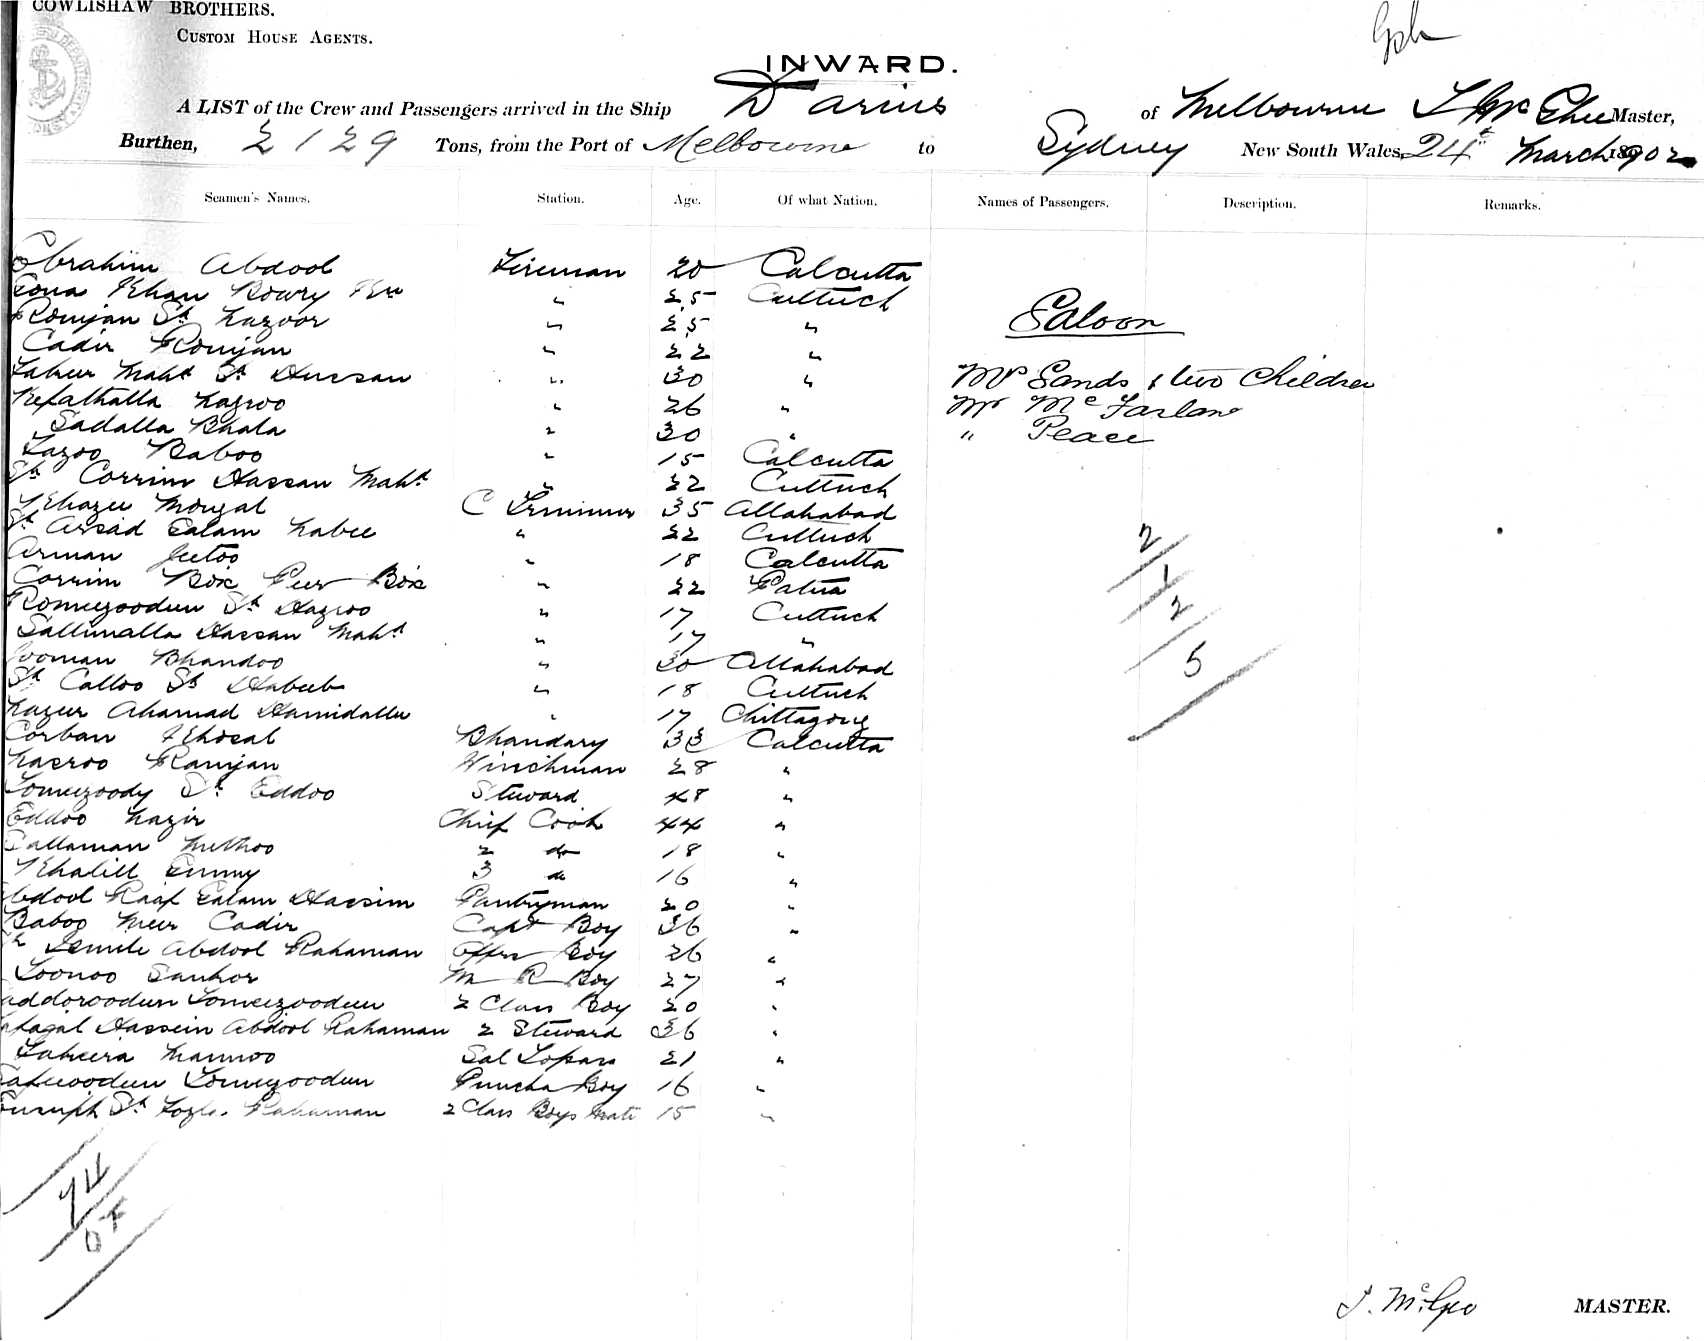 COWLISHAW BROTHERS.
CUSTOM HOUSE AGENTS.
INWARD.
A LIST of the Crew and Passengers arrived in the Ship Darius of Melbourne Master,
Burthen, 2129 Tons, from the Port of Melbourne to Sydney New South Wales, 24th March 1902
Seamen's Names. Station. Age. Of what Nation. Names of Passengers. Description. Remarks.
Ebrahim Abdool Fireman 20 Calcutta
Khan Bowry " 25 Cuttuck
Romjan Sk Nazoor " 25 "
Saloon
Cadir Romjan " 22 "
Mahd Sk Hussan " 30 "
Mrs Sands & two Children
Kefathalla Nazroo " 26 "
Mr McFarlane
Sadalla Bhola " 30 "
" Peace
Baboo " 15 Calcutta
Sk Corrim Hassan Mahd " 22 Cuttuck
Mongal C 35 Allahabad
Sk Arsad Salam Nabee " 22 Cuttuck
Arman Jeetoo " 18 Calcutta
Corrim Box Peer Box " 22 Patna
Romeezoodeen Sk Hazroo " 17 Cuttuck
Sallimalla Hassan Mahd " 17 "
Jooman Bhandoo " 30 Allahabad
Sk Calloo Sk Habeeb " 18 Cuttuck
Nazeer Ahamad Hamidalla " 17 Chittagong
Corban Bhandary 33 Calcutta
Nasroo Ramjan Winchman 28 "
Tomeezoody Sk Eddoo Steward 48 "
Eddoo Nazir Chief Cook 44 "
Callaman Mithoo 2 do 18 "
Khalill 3 do 16 "
Abdool Raaf Salam Hassim Pantryman 20 "
Baboo Meer Cadir Capt Boy 36 "
Abdool Rahaman Offrs Boy 26 "
Toonoo Sankor M R Boy 27 "
Tomeezoodeen 2 Class Boy 20 "
Hassein Abdool Rahaman 2 Steward 36 "
Taheera Mannoo Sal Topas 21 "
Tomeezoodeen Puncha Boy 16 "
Sk Rahaman 2 Class Boys Mate 15 "
2
1
2
5
74
MASTER.